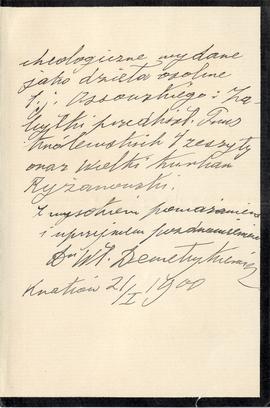 cheologiczne wydane
jako dzieła osobne
t. j. Ossowskiego: Za-
bytki przedhist. Prus
Królewskich 4 zeszyty
oraz Wielki kurhan
Ryżanowski.
Z wysokiem poważaniem
i uprzejmem pozdrowieniem
Dr Wł. Demetrykiewicz
Kraków 21/I 1900